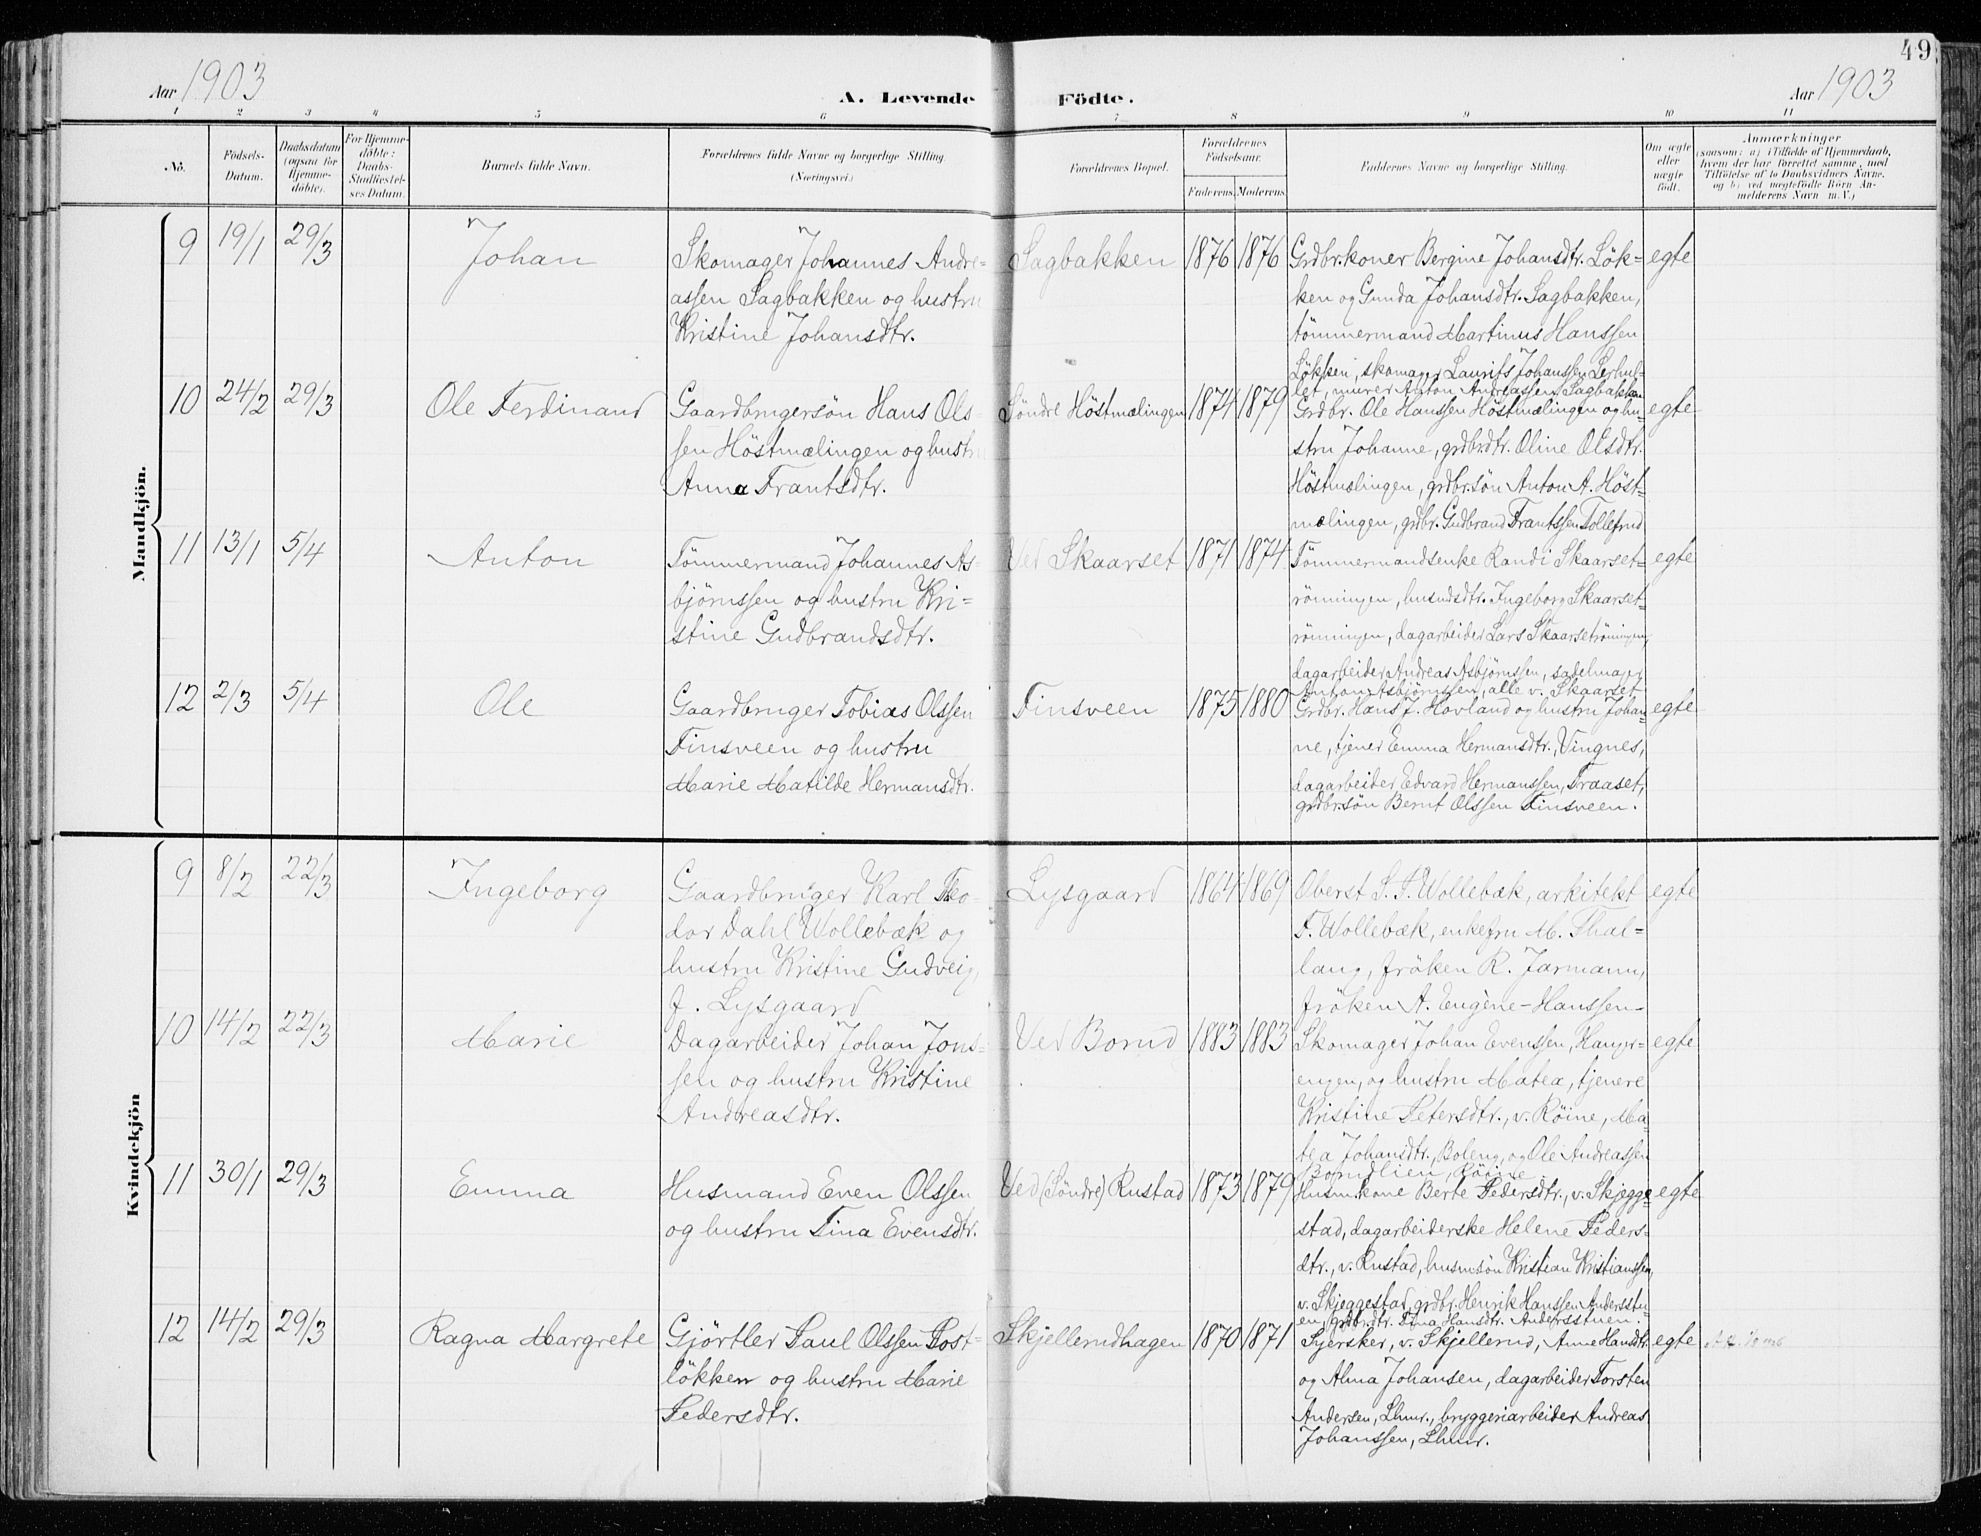 49
Aar 1903
A. Levende Födte.
Aar 1903
1 2 3 4 5 6 7 8 9 10 11
No.
Födsels-
Datum.
Daabsdatum
(ogsaa for
Hjemme-
döbte).
For Hjemme-
döbte:
Daabs-
Stadfæstel-
ses Datum.
Barnets fulde Navn.
Forældrenes fulde Navne og borgerlige Stilling.
(Næringsvei.)
Forældrenes Bopæl.
Forældrenes
Födselsaar.
Faderens. Moderens.
Faddernes Navne og borgerlige Stilling.
Om ægte
eller
uægte
födt.
Anmærkninger
(saasom: a) i Tilfælde af Hjemmedaab,
hvem der har forrettet samme, med
Tilföielse af to Daabsvidners Navne,
og b) ved uægtefödte Börn An-
melderens Navn m. V.)
Mandkjön.
9 19/1 29/3 Johan
Skomager Johannes Andre-
assen Sagbakken og hustru
Kristine Johansdtr.
Sagbakken 1876 1876
Grdbr.koner Bergine Johansdtr. Lök-
ken og Gunda Johansdtr. Sagbakken,
tömmermand Martinus Hanssen
Lökken, skomager Laurits Johanssen Lerhul-
let, murer Anton Andreassen Sagbakken
egte
10 24/2 29/3 Ole Ferdinand
Gaardbrugersön Hans Ols-
sen Höstmælingen og hustru
Anna Frantsdtr.
Söndre Höstmælingen 1874 1879
Grdbr. Ole Hanssen Höstmælingen og hu-
stru Johanne, grdbr.dtr. Oline Olsdtr.
Höstmælingen, grdbr.sön Anton A. Höst-
mælingen, grdbr. Gudbrand Frantssen Tollefrud
egte
11 13/1 5/4 Anton
Tömmermand Johannes As-
björnssen og hustru Kri-
stine Gudbrandsdtr.
Ved Skaarset 1871 1874
Tömmermandsenke Randi Skaarset-
rönningen, husmdsdtr. Ingeborg Skaarset-
rönningen, dagarbeider Lars Skaarsetröningen,
dagarbeider Andreas Asbjörnssen, sadelmager
Anton Asbjörnssen, alle v. Skaarset
egte
12 2/3 5/4 Ole
Gaardbruger Tobias Olssen
Finsveen og hustru
Marie Matilde Hermansdtr.
Finsveen 1875 1880
Grdbr. Hans J. Hovland og hustru Johan-
ne, tjener Emma Hermansdtr., Vingnes,
dagarbeider Edvard Hermanssen, Traaset,
grdbr.sön Bernt Olssen Finsveen.
egte
Kvindekjön
9 8/2 22/3 Ingeborg
Gaardbruger Karl Teo-
dor Dahl Wollebæk og
hustru Kristine Gudveig,
f. Lysgaard
Lysgaard 1864 1869
Oberst S. T. Wollebæk, arkitekt
F. Wollebæk, enkefru M. Thal-
lang, fröken R. Jarmann,
fröken A. Eugène-Hanssen
egte
10 14/2 22/3 Marie
Dagarbeider Johan Jons-
sen og hustru Kristine
Andreasdtr.
Ved Borud 1883 1883
Skomager Johan Evenssen,
engen, og hustru Matea, tjenere
Kristine Petersdtr., v. Röine, Ma-
tea Johansdtr., Boleng, og Ole Andreassen
Borudlien, Röine
egte
11 30/1 29/3 Emma
Husmand Even Olssen
og hustru Tina Evensdtr.
Ved (Söndre) Rustad 1873 1879
Husm.kone Berte Pedersdtr., v. Skjegge-
stad, dagarbeiderske Helene Peders-
dtr., v. Rustad, husm.sön Kristian Kristianssen,
v. Skjeggestad, grdbr. Henrik Hanssen Andersstu-
en, grdbr.dtr. Tina Hansdtr. Andersstuen.
egte
12 14/2 29/3 Ragna Margrete
Gjörtler Paul Olssen Post-
lökken og hustru Marie
Pedersdtr.
Skjellerudhagen 1870 1871
Syersker, v. Skjellerud, Anne Hansdtr.
og Alma Johansen, dagarbeider Torsten
Andersen, Lhmr., bryggeriarbeider Andreas
Johanssen, Lhmr.
egte